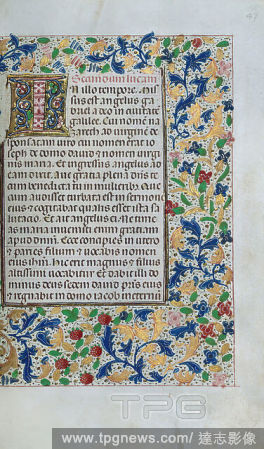 47
Secundum lucam
N illo tempore. Mis
sus est angelus ga
briel a deo in ciuitatē
galilee. Cui nomē na
zareth ad uirginē de
ponsatam uiro cui nomen erat io
seph de domo dauid & nomen uirgi
nis maria. Et ingressus angelus ad
eam dixit. Aue gratia plena dn̄s te
cum benedicta tu in mulieribꝫ. Que
cum audisset turbata est in sermone
eius & cogitabat qualis esset ista sa
lutacio. Et ait angelus ei. Ne time
as maria inuenisti enim gratiam
apud dnm̄. Ecce concipies in utero
& paries filium & uocabis nomen
eius ihm̄. Hic erit magnus & filius
altissimi uocabitur Et dabit illi do
minus deus sedem dauid pr̄is eius
& regnabit in domo iacob in eternū
TPG
www.tpgnews.com/達志影像